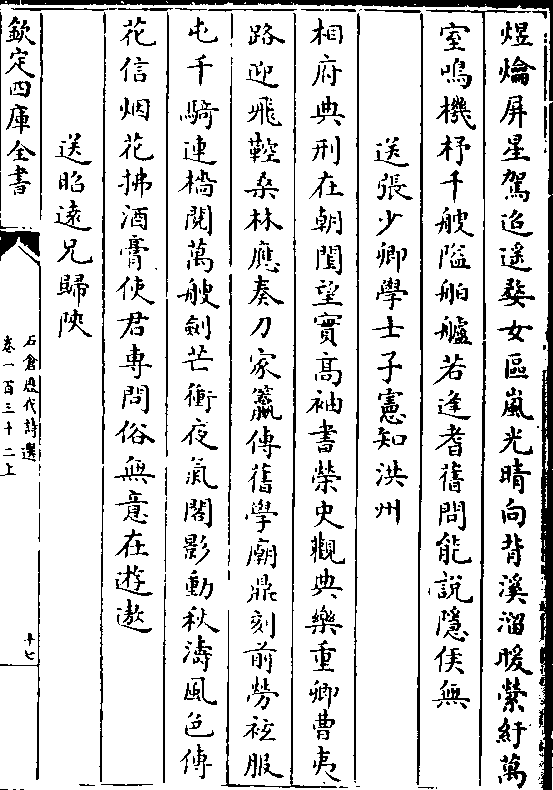 煜爚屏星駕迢遥婺女區嵐光晴向背溪溜暖縈紆萬
室鳴機杼千艘隘舳艫若逢耆舊問能說隱侯無
送張少卿學士子憲知洪州
相府典刑在朝閨望實高袖書榮史觀典樂重卿曹夷
路迎飛鞚桑林應奏刀家籯傳舊學廟鼎刻前勞袨服
屯千騎連檣閲萬艘劍芒衝夜氣閣影動秋濤風色傳
花信烟花拂酒膏使君専問俗無意在遊遨
送昭遠兄歸陜
欽定四庫全書
石倉歷代詩選
卷一百三十二上
十七